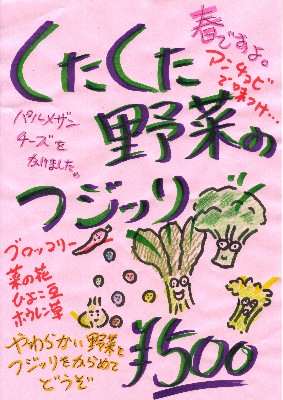 春ですよ。
アンチョビ
で味つけ…
くたくた
野菜の
フジッリ
パルメザン
チーズを
かけました。
ブロッコリー
菜の花
ひよこ豆
ホウレン草
やわらかい野菜と
フジッリをからめて
どうぞ
¥500